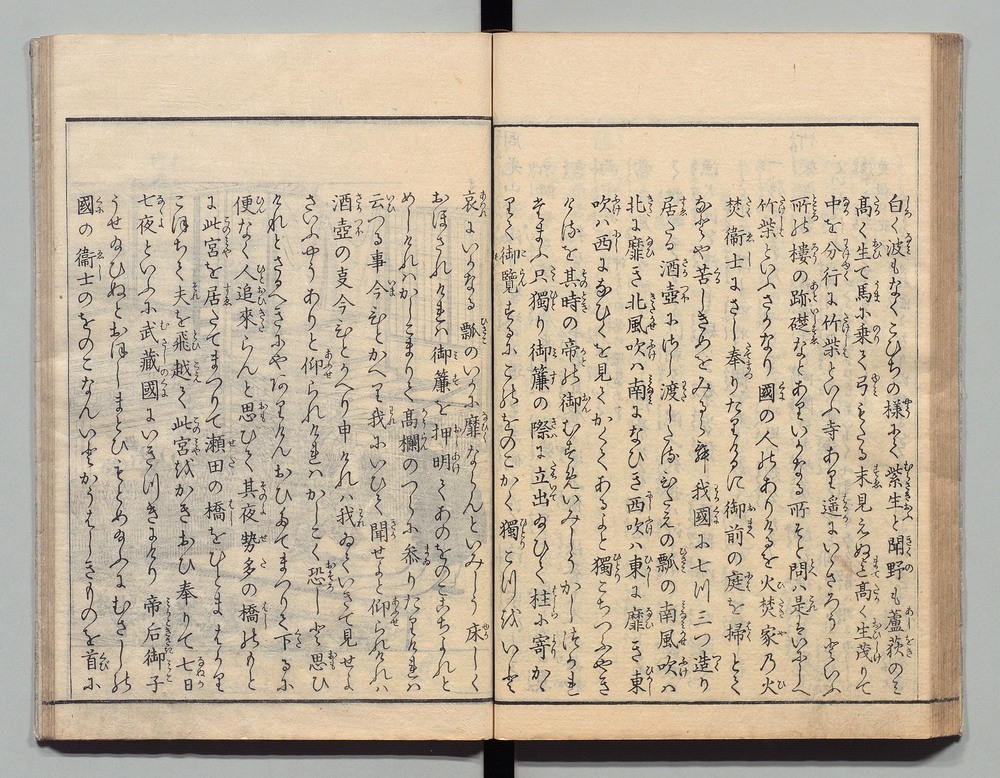 白く波もなくこひちの様にて紫生と聞野も蘆荻のミ
高く生て馬に乗て弓もたる末見えぬまて高く生茂りて
中を分行に竹柴といふ寺あり遥にいゝさろうといふ
所の楼の跡礎なとありいかなる所そと問ハ是ハいにしへ
竹柴といふさかなり國の人のありけるを火焚家の火
焚衞士にさし奉りたりけるに御前の庭を掃とて
なとや苦しきめをみるらん我國に七つ三つ造り
居たる酒壺にさし渡したるひたえの瓢の南風吹ハ
北に靡き北風吹ハ南になひき西吹ハ東に靡き東
吹ハ西になひくを見てかくてあるよと獨こちつふやき
けるを其時の帝の御むすめいみしうかしつかれ
たまふ只獨り御簾の際に立出給ひて柱に寄かゝ
りて御覽するにこのをのこかく獨こつをいと
哀にいかなる瓢のいかに靡ならんといみしう床しく
おほされけれは御簾を押明てあのをのここちよれと
めしけれハかしこまりて高欄のつらに参りたりけれハ
云つる事今ひとかへり我にいひて聞せよと仰られけれハ
酒壺の事今ひとかへり申けれハ我ゐていきて見せよ
さいふやうありと仰られけれハかしこく恐しと思ひ
けれとさるへきにやありけんおひ奉てまつりて下るに
便なく人追來らんと思ひて其夜勢多の橋のもと
に此宮を居たてまつりて瀬田の橋をひとまはかり
こほちて夫を飛越て此宮をかきおひ奉りて七日
七夜といふに武藏國にいきつきにけり帝后御子
うせ給ひぬとおほしまとひもとめ給ふにむさしの
國の衞士のをのこなんいとかうはしきものを首に